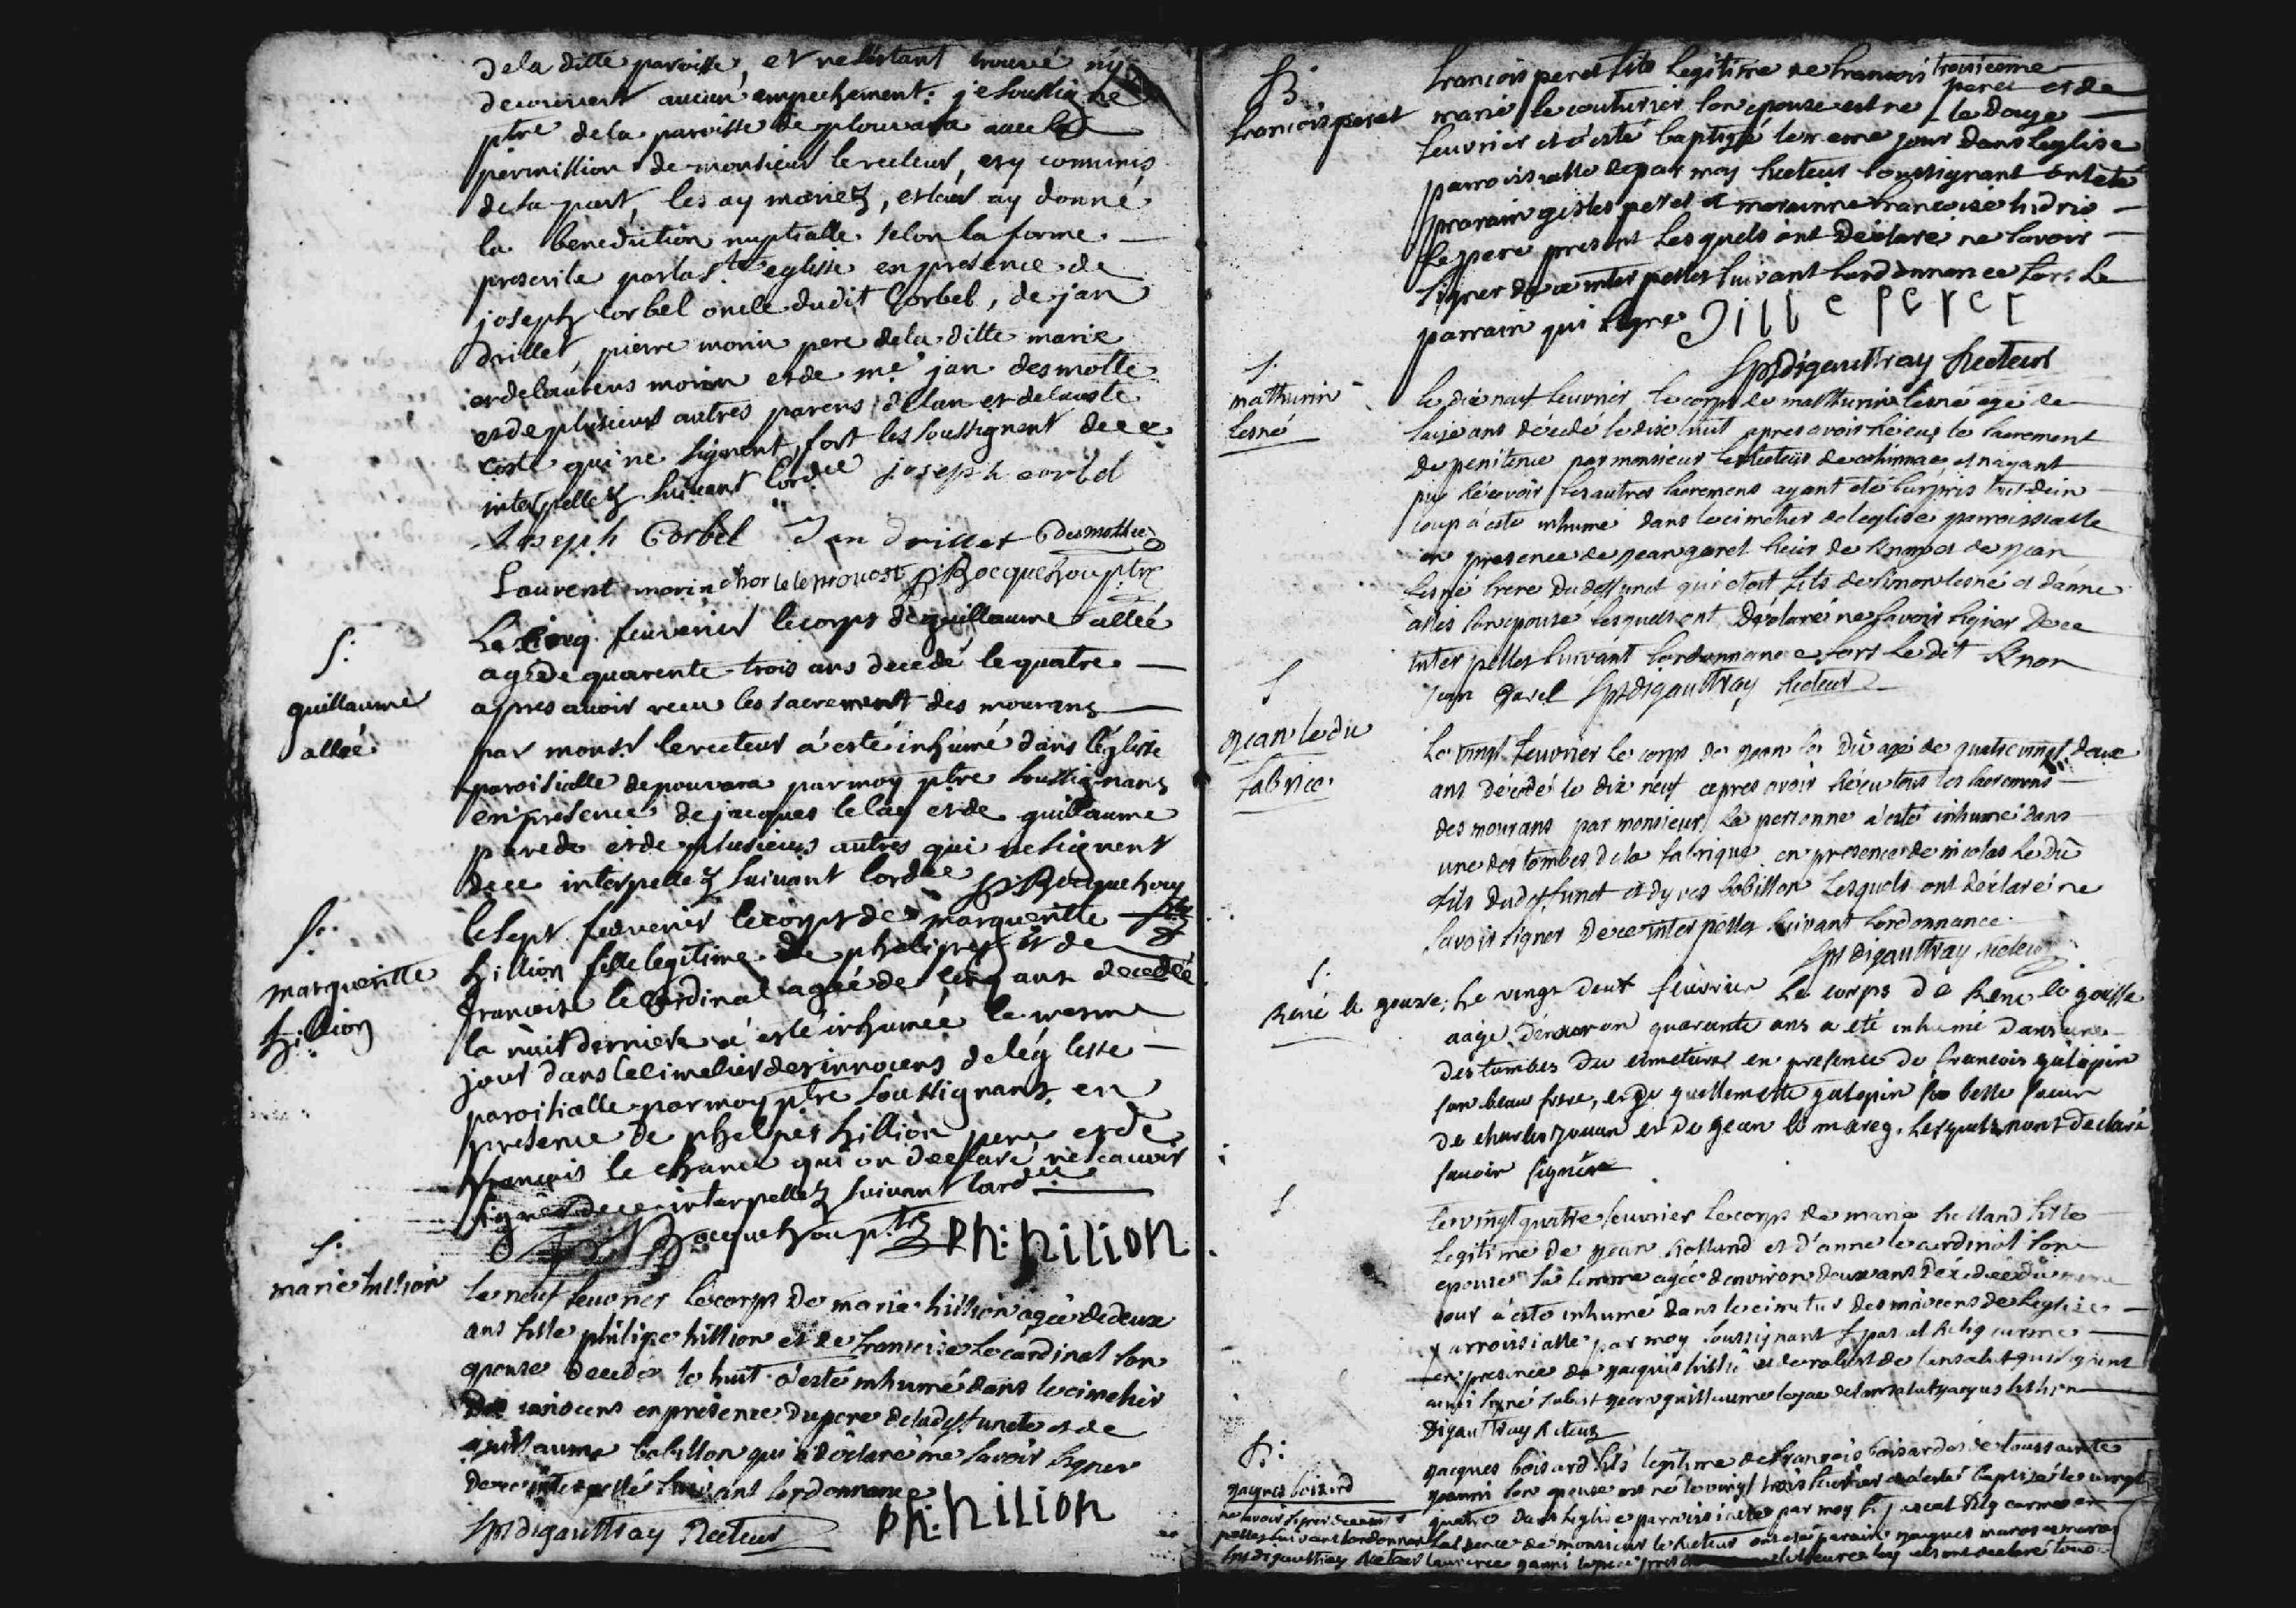 dela ditte paroisse, et ne s'estant trouvé ny
decouvert aucun empechement: je soussigne
ptre dela paroisse de plouvara avec la
permission de monsieur le recteur, et y commis
de sa part, les ay mariez, et leur ay donné
la benediction nuptialle selon la forme
prescrite par la Ste eglisse en presence de
joseph Corbel oncle dudit Corbel, de jan
drillet, pierre morin pere dela ditte marie
et de laurens morin et de me jan desmotte
et de plusieurs autres parens d'elan et de lautre
costé qui ne signent, fort les soussignent de ce
interpellez suivant lordce joseph corbel
Joseph Corbel Jan drillet Cdesmottes
Laurent morin le provost Bocquehou ptre
S:
guillaume
alleé
Le Cinq feuverier le corps de guillaume alleé
agé de quarente trois ans decedé le quatre
apres avoir receu les sacrement des mourans
par monsr le recteur á esté inhumé dans léglisse
paroisialle depouvara par moy ptre soussignans
en presence de jacques le lay et de guillaume
perede et de plusieurs autres qui ne signent
de ce interpellez suivant lordce Bocquehou
ptre
S:
margueritte
hillion
le sept feuverier le corps de marguerite
hillion fille legitime de phelipes et de
francoise le Cardinal ageé de cinq ans decedeé
la nuit derniere á esté inhumeé le mesme
jour dans le cimetier des innocens de léglisse
paroisialle par moy ptre soussignans en
presence de phelipes hillion pere et de
francois le chance qui on declaré ne scavoir
signer de ce interpellez suivant lordce
Bocquehou ptre ph: hilion
S:
marie hillion
le neuf feuvrier le corps de marie hillion agée de deux
ans fille philipe hillion et de francoise le cardinal son
epouse decede le huit á esté inhumé dans le cimetier
des innocens en présence du pere de la deffuncte et de
guillaume bobillon qui á déclaré ne savoir signer
de ce interpellé suivant lordonnance
digaultray Recteur ph: hilion
B:
francois peret
francois peret fils legitime de francois peret et de
troisieme
marie le couturier son epouse est ne le douze
feuvrier et á esté baptizé le meme jour dans leglise
parroissialle par moy Recteur soussignant ont été
parain gilles peret et maraine francoise hidrio
le pere present lesquels ont déclaré ne savoir
signer de ce interpelles suivant lordonnance fors le
parrain qui signe Gille peret
digaultray Recteur
S:
mathurin
lesné
le dix neuf feuvrier le corps de mathurin lesné agé de
saise ans décédé le dix huit apres avoir réceu le sacrement
de penitence par monsieur le Recteur de et nayant
pu récevoir les autres sacremens ayant été surpris tout dun
coup á esté inhumé dans le cimetier de leglise parroissialle
en presence de jean garel sieur de Knor et de jean
lesné frere du deffunct qui etoit fils de simon lesné et danne
son epouse lesquels ont déclaré ne savoir signer de ce
interpelles suivant lordonnance fors ledit Knor
jean Garel digaultray Recteur
S
jean le du
fabrice
le vingt feuvrier le corps de jean le Du agé de quatrevingt deux
ans décédé le dix neuf apres avoir réceu tous les sacremens
des mourans par monsieur la personne á esté inhumé dans
une des tombes de la fabrique en presence de nicolas le du
fils du deffunct et dyves bobillon lesquels ont déclaré ne
savoir signer de ce interpelles suivant lordonnance
digaultray recteur
S:
René le gousse
Le vingt deux feuvrier le corps de Rene le gousse
aagé denviron quarante ans a eté inhumé dans une
des tombes du cimetiere en presence de francois galopin
son beau frere, et de guillemette galopin sa belle soeur
de charles jouan et de jean le mareg. lesquels nont declaré
savoir signer
S
le vingt quatre feuvrier le corps de marie holland fille
legitime de jean holland et d'anne le cardinal son
epouse sa femme agée denviron deux ans décédée du meme
jour á esté inhume dans le cimetier des innocens de leglise
parroissialle par moy soussignant
en presence de jacques hillion et de robert de lansalut qui signent
jean guillaume de lansalut jacques hillion
Digaultray Recteur
B:
jacques boisard
jacques boisard fils legitime de françois boisard et de toussainte
jeanni son epouse est né le vingt trois feuvrier et á esté baptizé le vingt
quatre dans leglise parroissialle par moy
labsence de monsieur le Recteur ont été parain jacques
laurence jeanni le pere present
ne savoir signer de ce inter
pelles suivant lordonnance
digaultray Recteur